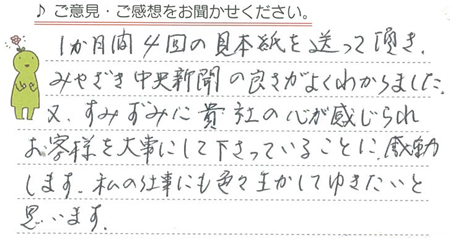 ♪ ご意見・ご感想をお聞かせください。
1か月間4回の見本紙を送って頂き、
みやざき中央新聞の良さがよくわかりました。
又、すみずみに貴社の心が感じられ
お客様を大事にして下さっていることに、感動
します。私の仕事にも色々生かしてゆきたいと
思います。